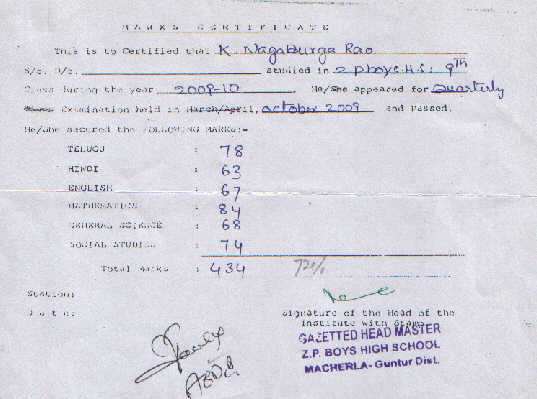 MARKS CERTIFICATE
This is to Certified that K. Nagaburga Rao
S/o. D/o. studied in Z P Boys. H.S: 9th
Class during the year 2009-10 He/She appeared for Quarterly
Examination held in March/April, october 2009 and Passed.
He/she secured the FOLLOWING MARKS:-
TELUGU : 78
HINDI : 63
ENGLISH : 67
MATHEMATICS : 84
GENERAL SCIENCE : 68
SOCIAL STUDIES : 74
Total marks : 434 72%
Station:
Date: Signature of the Head of the
Institute with Stamp
GAZETTED HEAD MASTER
Z.P. BOYS HIGH SCHOOL
MACHERLA- Guntur Dist.